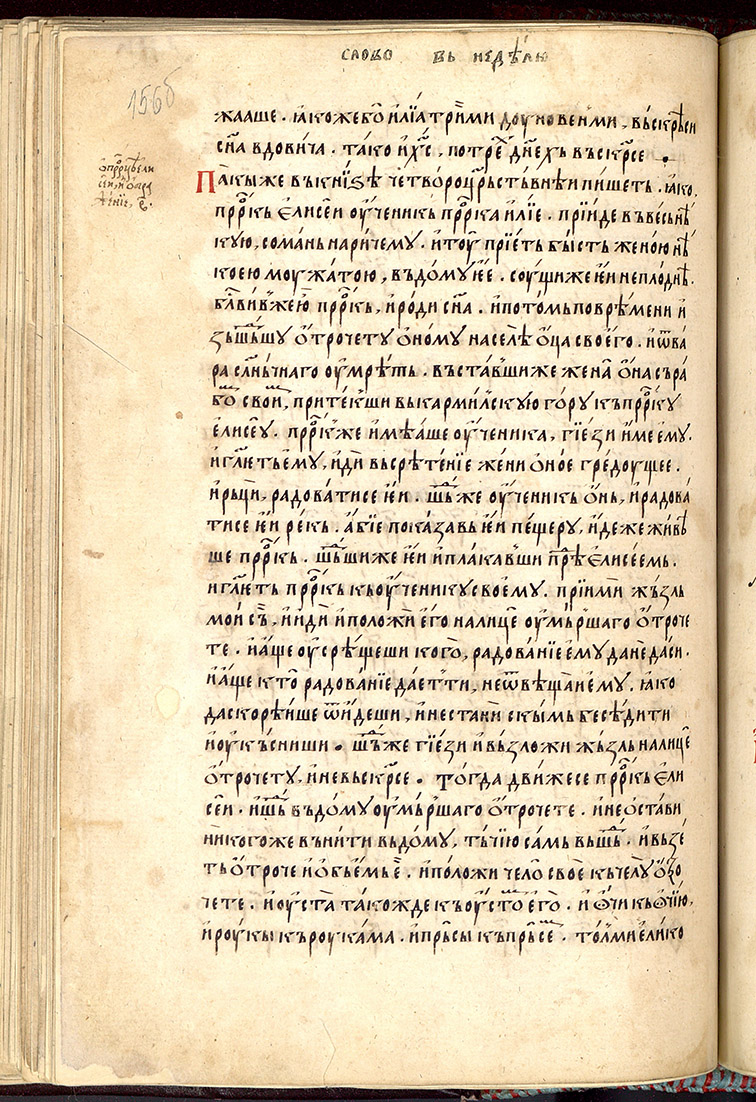 слово въ недѣлю
156б
жааше . ꙗкоже бо̀ и҆лїа̀ три́ми дѹновенїми , въскрⷭ҇си
сн҃а вдови́ча . та́ко и҆ хс҃ , по трⷯе дн҃ехъ въскрⷭ҇се .
Па́кы же въ кни́ѕѣ четворѡцрⷭ҇ьствнѣи пи́шеть . ꙗ҆́ко
прⷪ҇ркъ е҆лисе́и ѹ҆чени́къ прⷪ҇рка и҆лїе . прїи́де въ весь нѣ́
кую , сома́нь нари́чему . и҆ тѹ̀ прїе́ть бы́сть жено́ю нѣ́
коею мѹжа́тою , въ до́му и҆̀ є҆е . сѹ́щи же и҆̀ и непло́днѣ .
блⷭ҇ви́вже ю҆̀ прⷪ҇ркъ , и҆ родѝ сн҃а . и҆ пото́мь по врѣ́мени и҆
зъшⷣьшу ѻ҆трочету ѻ҆ному на се́лѣ ѻ҆ца свое́го . и҆ ѿ ва́
ра слн҃ьчнаго ѹ҆мрѣ́ть . въста́вши же жена̀ ѻ҆́на съ ра
бо̀ⷨ свои́ⷨ , прите́кши въ карми́лскую го́ру къ прⷪ҇рку
е҆лисе́у . прⷪ҇ркже и҆мѣ́аше ѹ҆ченика , гїе́зи и҆́ме е҆му .
и҆ гл҃еть е҆му , и҆дѝ въ срѣ́тенїе жени̏ ѻ҆ное гре́дѹщее .
и҆ рьци̏ , ра́доватисе и҆̀ и . шⷣь же ѹ҆чени́къ ѻ҆нь , и҆ ра́дова
тисе и҆̀ и ре́къ . а҆́бїе показа́вь и҆̀ и пе́щеру , и҆де́же жи́вѣ
ше прⷪ҇ркъ . шⷣьши же и҆̀ и и҆ пла́кавши прⷣѣ е҆лисе́емь .
и҆ гл҃еть прⷪ҇ркъ къ ѹ҆ченику свое́му . прїими̏ жь́зль
мои̏ съ̏ , и҆ и҆дѝ и҆ положѝ е҆го̀ на лице̏ ѹ҆мь́ршаго ѻ҆́троче
те . и҆ а҆́ще ѹ҆срѣ́щеши кого̀ , ра́дова́нїе е҆му да не да́си .
и҆ а҆́ще кто̀ ра́дова́нїе дае́ть ти , не ѿвѣща́и е҆му . ꙗ҆ко
да скорѣ́ише ѿи҆деши , и҆ не ста́ни̏ съ кы́мь бесѣ́дити
и҆ ѹ҆къ́сниши . шⷣь же гїе́зи и҆ възложи жь́зль на лице̏
ѻ҆трочету , и҆ не въскрⷭ҇се . Тогда̀ дви́жесе прⷪ҇ркъ е҆ли
се́и . и҆ шⷣь въ до́му ѹ҆мь́ршаго ѻ҆́трочете . и҆ не ѻ҆ста́ви
ни́когоже вънити въ до́му , тъ́чїю са́мь въшⷣь . и҆ възе́
ть ѻ҆́троче и҆ ѻ҆б̾е́мь е҆̏ . и҆ положи чело̏ свое̏ къ че́лу ѻ҆́ро
чете . и҆ ѹ҆ста̀ та́кожде къ ѹ҆сто́ⷨ е҆го̀ . и҆ ѻ҆́чи къ ѻ҆́чїю̀ ,
и҆ рѹ́кы къ рѹ́кама . и҆ прь́сы къ прь́сеⷨ . то́лми е҆ли́ко